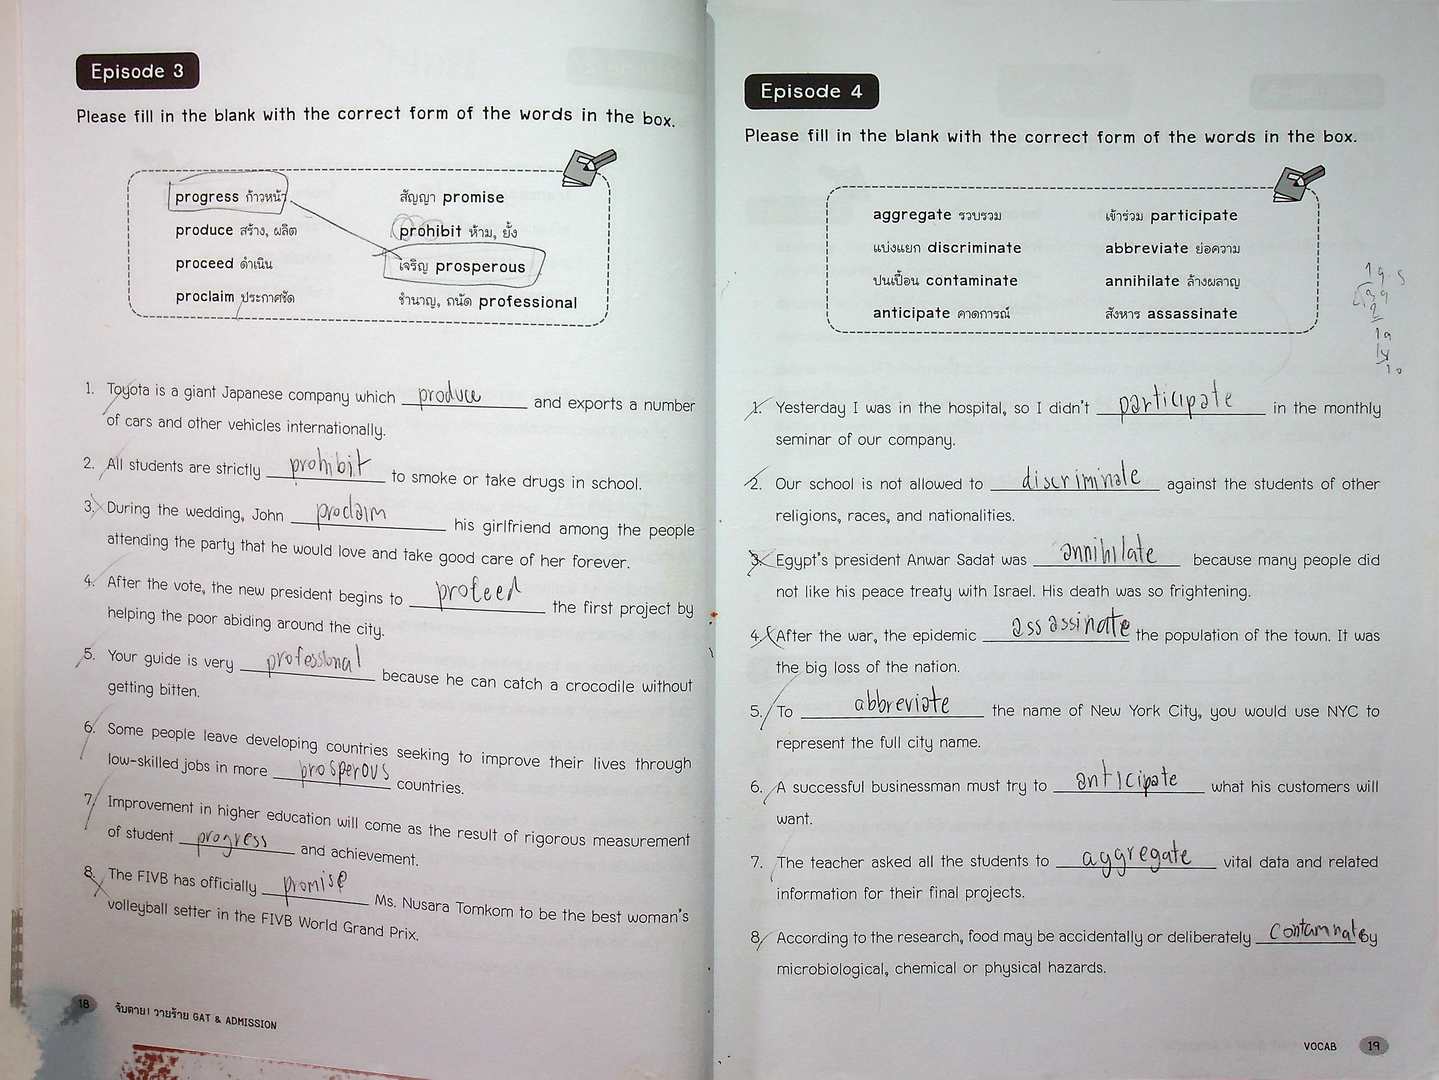 Episode 3
Please fill in the blank with the correct form of the words in the box.
progress ก้าวหน้า
สัญญา promise
produce สร้าง, ผลิต
prohibit ห้าม, ยั้ง
proceed ดำเนิน
เจริญ prosperous
proclaim ประกาศชัด
ชำนาญ, ถนัด professional
1. Toyota is a giant Japanese company which produce and exports a number
of cars and other vehicles internationally.
2. All students are strictly prohibit to smoke or take drugs in school.
3. During the wedding, John proclaim his girlfriend among the people
attending the party that he would love and take good care of her forever.
4. After the vote, the new president begins to proteed the first project by
helping the poor abiding around the city.
5. Your guide is very professional because he can catch a crocodile without
getting bitten.
6. Some people leave developing countries seeking to improve their lives through
low-skilled jobs in more prosperous countries.
7. Improvement in higher education will come as the result of rigorous measurement
of student progress and achievement.
8. The FIVB has officially promise Ms. Nusara Tomkom to be the best woman's
volleyball setter in the FIVB World Grand Prix.
18 จับตาย! วายร้าย GAT & ADMISSION
Episode 4
Please fill in the blank with the correct form of the words in the box.
aggregate รวบรวม
เข้าร่วม participate
แบ่งแยก discriminate
abbreviate ย่อความ
ปนเปื้อน contaminate
annihilate ล้างผลาญ
anticipate คาดการณ์
สังหาร assassinate
1. Yesterday I was in the hospital, so I didn't participate in the monthly
seminar of our company.
2. Our school is not allowed to discriminate against the students of other
religions, races, and nationalities.
3. Egypt's president Anwar Sadat was annihilate because many people did
not like his peace treaty with Israel. His death was so frightening.
4. After the war, the epidemic assassinate the population of the town. It was
the big loss of the nation.
5. To abbreviate the name of New York City, you would use NYC to
represent the full city name.
6. A successful businessman must try to anticipate what his customers will
want.
7. The teacher asked all the students to aggregate vital data and related
information for their final projects.
8. According to the research, food may be accidentally or deliberately contamnate by
microbiological, chemical or physical hazards.
VOCAB 19